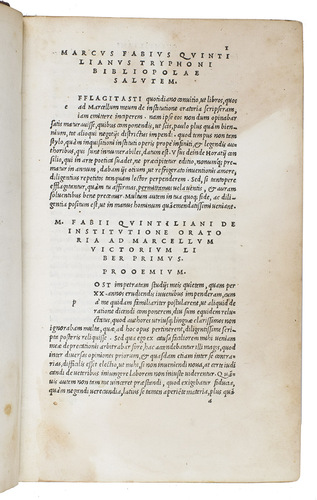 1
MARCUS FABIUS QUINTI
LIANUS TRYPHONI
BIBLIOPOLAE
SALUTEM.
FFLAGITASTI quotidiano conuitio, ut libros, quos
e ad Marcellum meum de institutione oratoria scripseram,
iam emittere inciperem. nam ipse eos non dum opinabar
satis maturuisse, quibus componendis, ut scis, paulo plus quàm bien-
nium, tot alioqui negotijs districtus impendi. quod tempus non tam
stylo, quàm inquisitioni instituti operis propè infiniti, et legendis auc-
toribus, qui sunt innumerabiles, datum est. Usus deinde Horatij con
silio, qui in arte poetica suadet, ne præcipitetur editio, nonumque pre-
matur in annum, dabam ijs otium, ut refrigerato inuentionis amore,
diligentius repetitos tanquam lector perpenderem. Sed, si tantopere
efflagitantur, quàm tu affirmas, permittamus uela uentis, et oram
soluentibus bene precemur. Multum autem in tua quoque fide, ac dili-
gentia positum est, ut in manus hominum quàm emendatissimi ueniant.
M. FABII QUINTILIANI DE
INSTITUTIONE ORATO
RIA AD MARCELLUM
VICTORIUM LI
BER PRIMUS.
PROOEMIUM.
OST impetratam studijs meis quietem, quam per
XX annos erudiendis iuuenibus impenderam, cum
p a me quidam familiariter postularent, ut aliquid de
ratione dicendi componerem, diu sum equidem reluc-
tatus, quod auctores utriusque linguæ clarissimos non
ignorabam multa, quæ ad hoc opus pertinerent, diligentissime scrip-
ta posteris reliquisse. Sed qua ego ex causa faciliorem mihi ueniam
meæ deprecationis arbitrabar fore, hac accendebantur illi magis, quod
inter diuersas opiniones priorum, et quasdam etiam inter se contra-
rias, difficilis esset electio, ut mihi si non inueniendi noua, at certe iudi
candi de ueteribus iniungere laborem non iniuste uiderentur. Quam-
uis autem non tam me uinceret præstandi, quod exigebatur fiducia,
quàm negandi uerecundia, latius se tamen aperiente materia, plus quàm
a